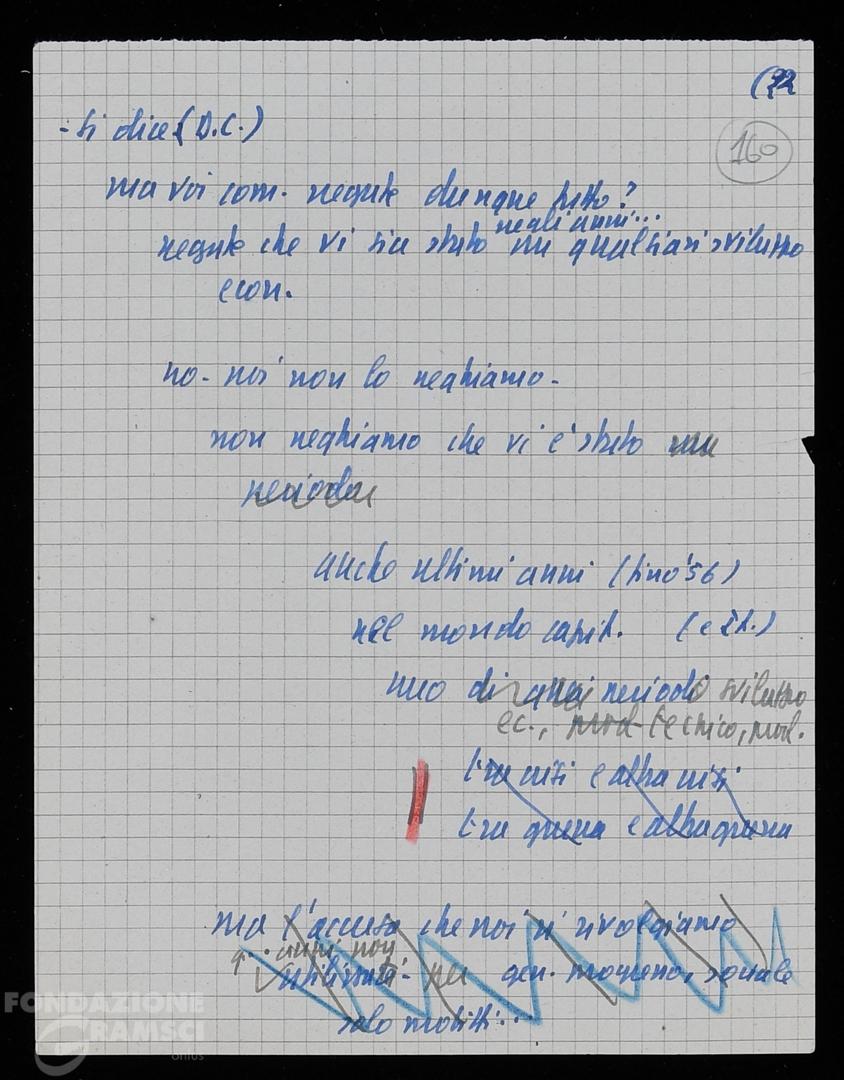 (32
160
- si dice (D.C.)
ma voi com. negate dunque tutto?
negli anni...
negate che vi sia stato un qualsiasi sviluppo
econ.
no - noi non lo neghiamo -
non neghiamo che vi è stato un
periodo
anche ultimi anni (sino '56)
nel mondo capit. (e It.)
uno di quei periodi sviluppo
ec., prod tecnico, prod.
tra crisi e altra crisi
tra guerra e altra guerra
ma l'accusa che noi vi rivolgiamo
q.. anni non
utilizzati - per gen. progresso, sociale
solo profitti...
FONDAZIONE
GRAMSCI
onlus